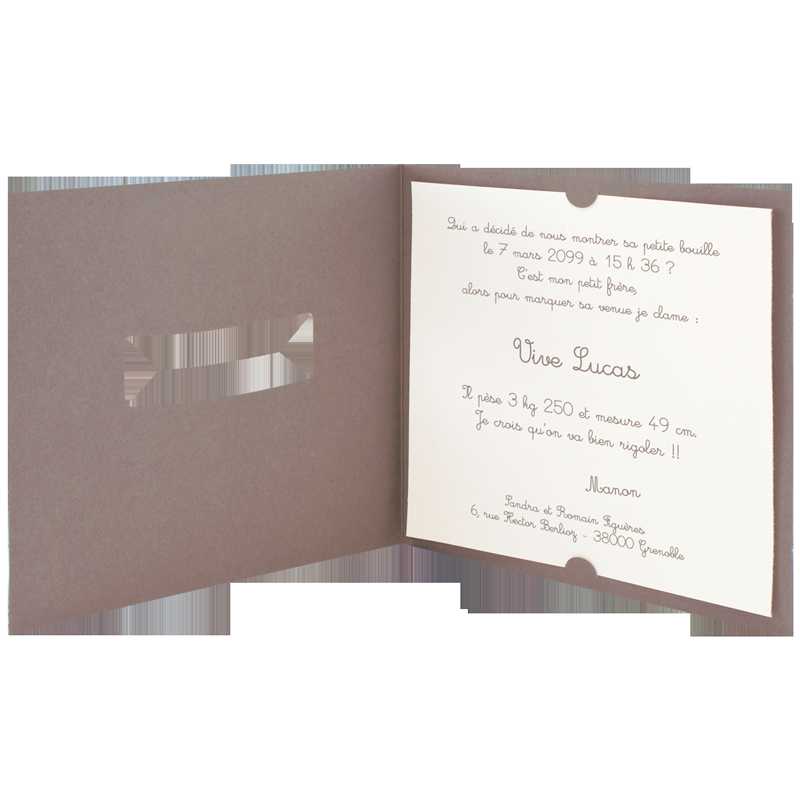 Qui a décidé de nous montrer sa petite bouille
le 7 mars 2099 à 15 h 36 ?
C'est mon petit frère,
alors pour marquer sa venue je clame :
Vive Lucas
Il pèse 3 kg 250 et mesure 49 cm.
Je crois qu'on va bien rigoler !!
Manon
Sandra et Romain Figuères
6, rue Hector Berlioz - 38000 Grenoble